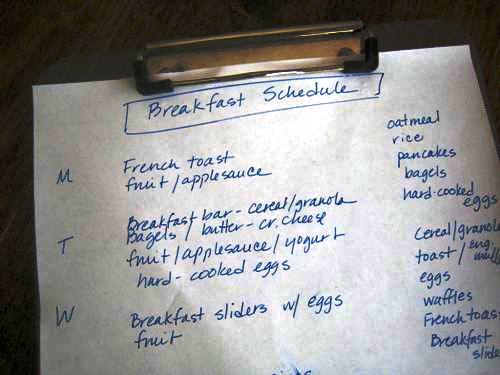 Breakfast Schedule
M
French toast
fruit/applesauce
T
Breakfast bar - cereal/granola
Bagels / butter - cr. cheese
fruit/applesauce/yogurt
hard-cooked eggs
W
Breakfast sliders w/ eggs
fruit
oatmeal
rice
pancakes
bagels
hard-cooked
eggs
Cereal/granola
toast/
eggs
waffles
French toas
Breakfast
slide